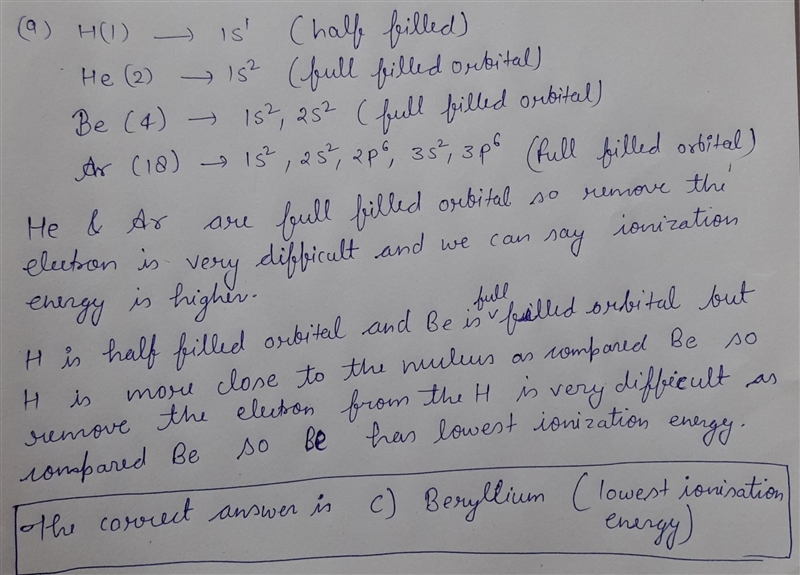 (a) H(1) → 1s¹ (half filled)
He (2) → 1s² (full filled orbital)
Be (4) → 1s², 2s² (full filled orbital)
Ar (18) → 1s², 2s², 2p⁶, 3s², 3p⁶ (full filled orbital)
He & Ar are full filled orbital so remove the
electron is very difficult and we can say ionization
energy is higher.
H is half filled orbital and Be is full filled orbital but
H is more close to the nucleus as compared Be so
remove the electron from the H is very difficult as
compared Be so Be has lowest ionization energy.
The correct answer is C) Beryllium (lowest ionisation
energy)